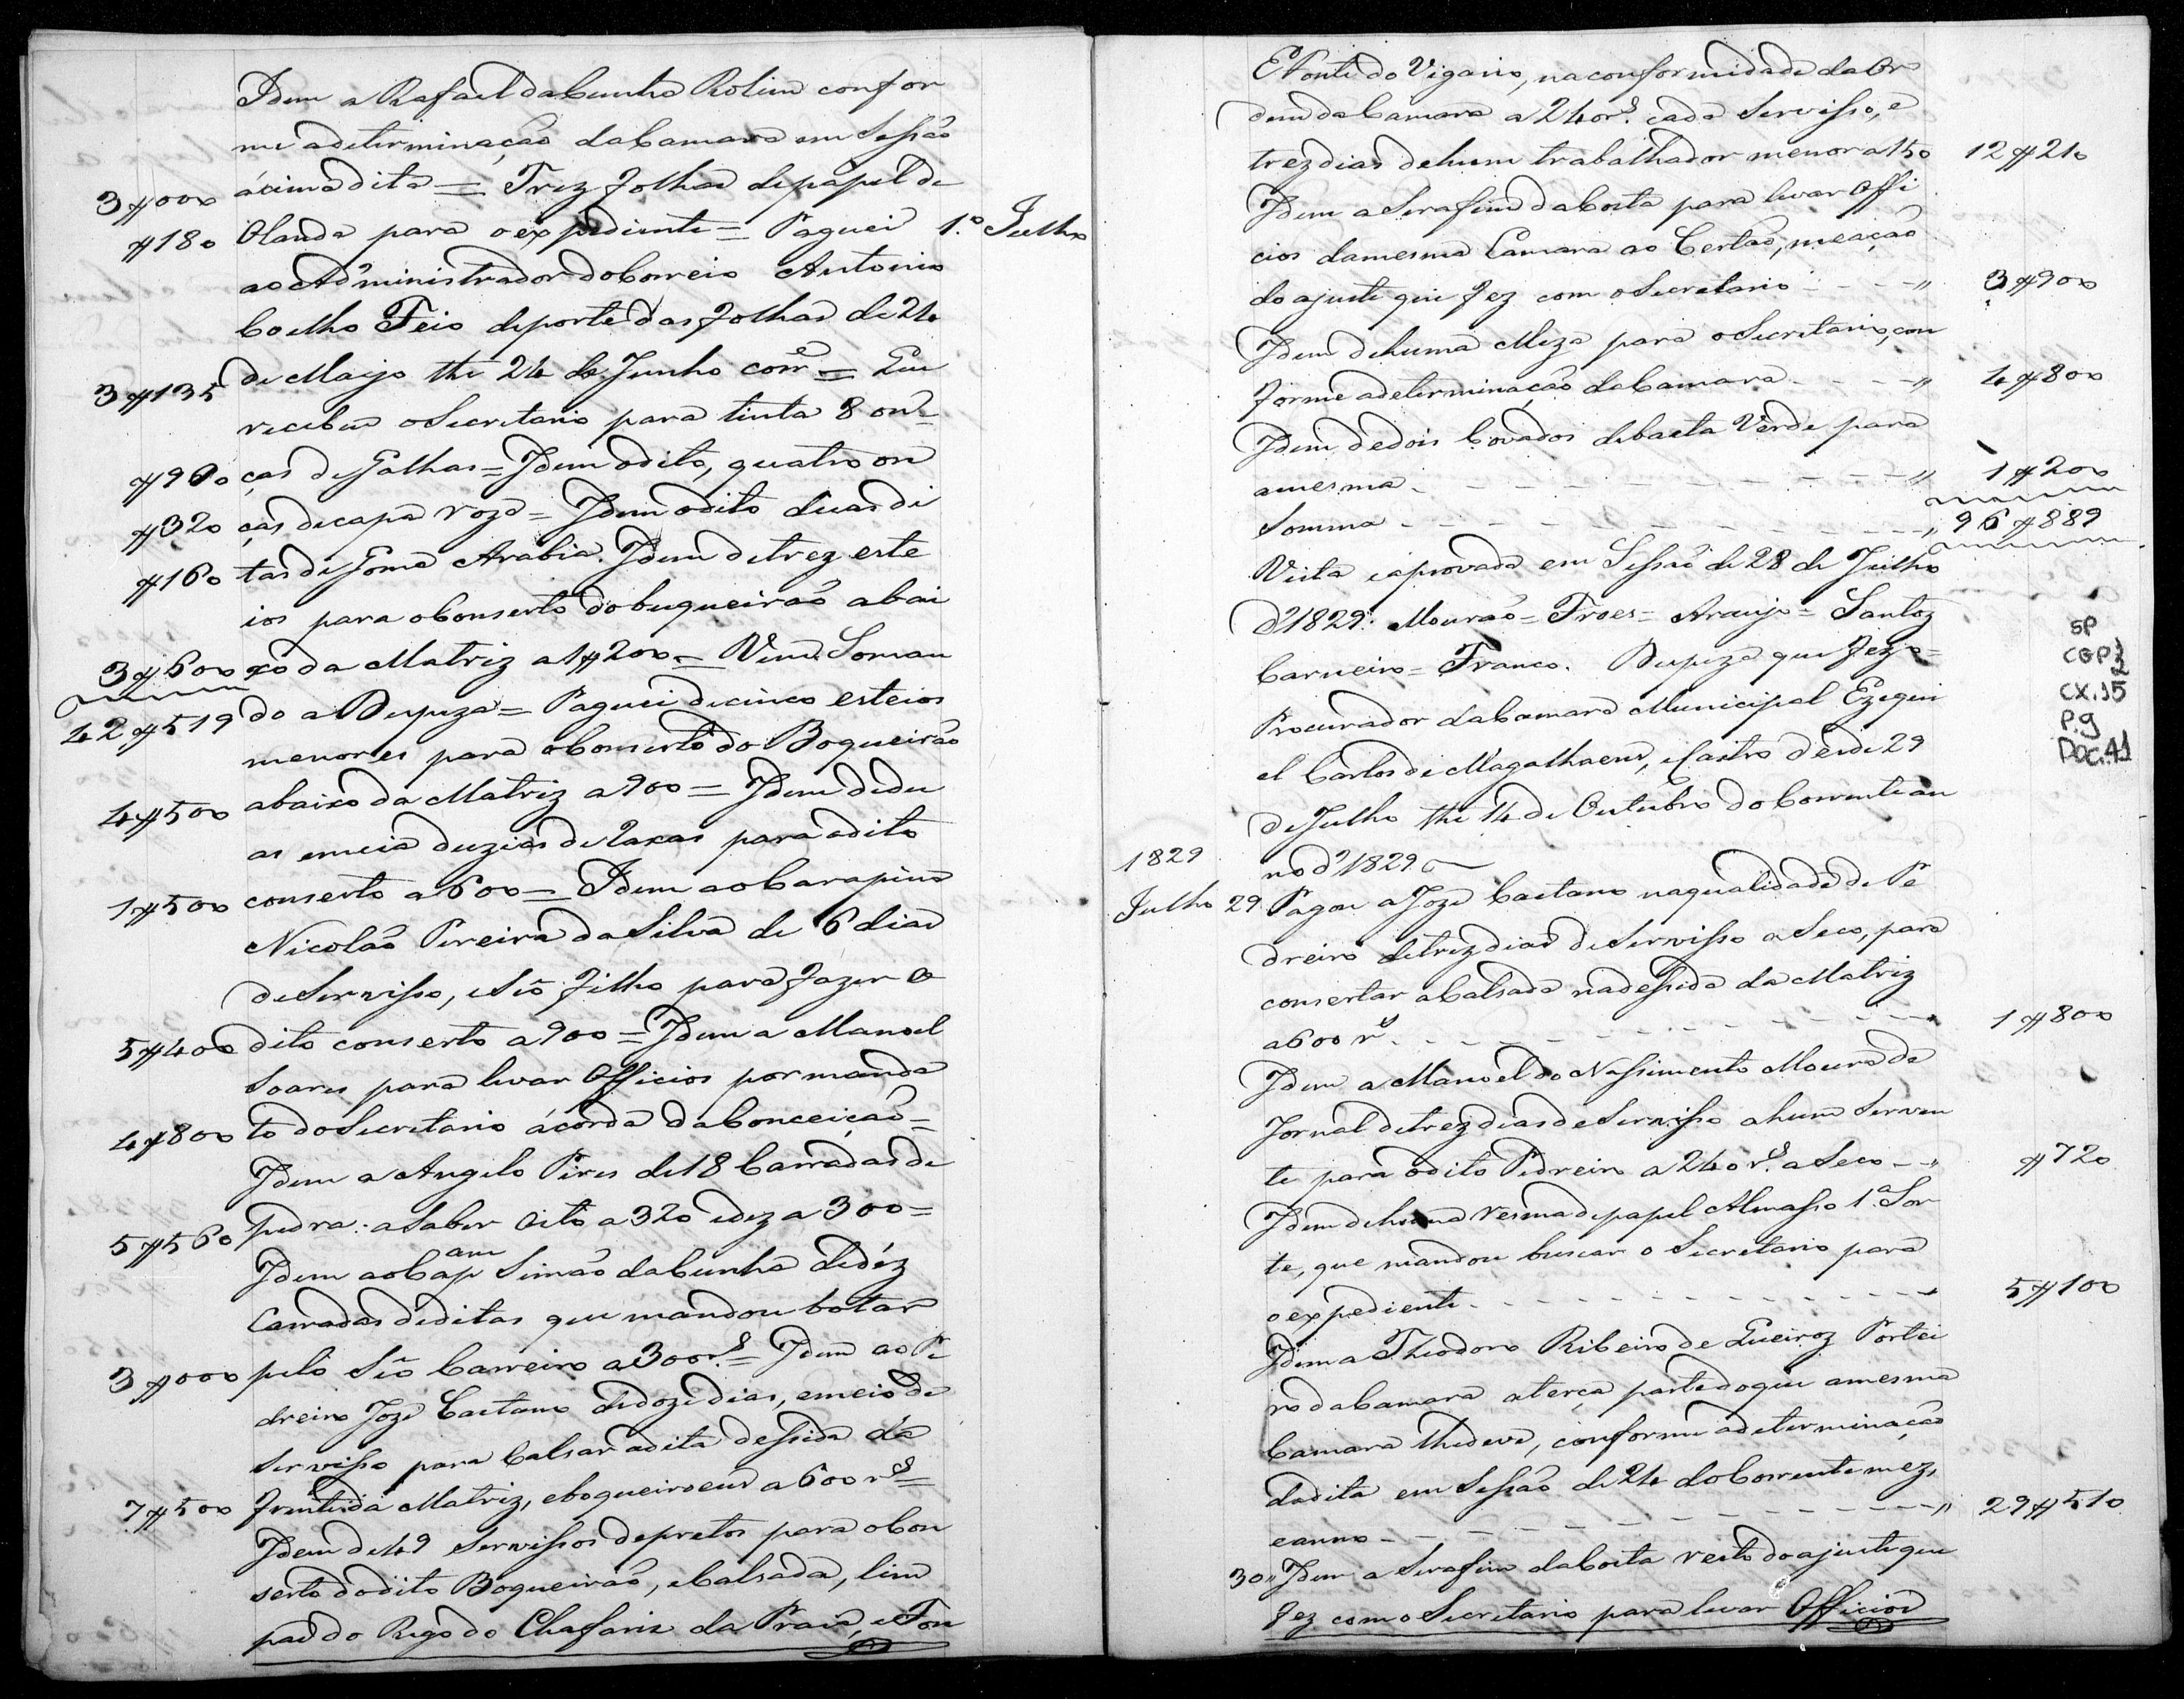 Idem a Rafael da Cunha Rolim confor
me a determinação da Camara em Sessão
3#000 ácima dita = Trez folhas de papel de
#180 Olanda para o expediente = Paguei 1.º Julho
ao Administrador do Correio Antonio
Coelho Feio de porte das folhas de 24
3#135 de Mayo the 24 de Junho corr.e = Que
recebeu o Secretario para tinta 8 on=
#960 ças de Galhas = Idem o dito, quatro on
#320 ças de capa roza = Idem o dito duas di
#160 tas de Goma Arabia. Idem de trez este
ios para o Conserto do buqueirão abai
3#600 xo da Matriz a 1#200 = Vem Soman
42#519 do a Despeza = Paguei de cinco esteios
menores para o Conserto do Boqueirão
4#500 abaixo da Matriz a 900 = Idem de du
as e meia duzias de Raxas para o dito
1#500 conserto a 600 = Idem ao Carapina
Nicoláo Pereira da Silva de 6 dias
de Servisso, e Seo filho para fazer o
5#400 dito conserto a 900 = Idem a Manoel
Soares para levar Officios por manda
4#800 to do Secretario á corda da Conceição =
Idem a Angelo Pires de 18 Carradas de
5#560 pedra: a Saber Oito a 320 e dez a 300 =
Idem ao Cap.am Simão da Cunha de déz
Carradas de ditas que mandou botar
3#000 pelo Seo Carreiro a 300 r.s = Idem ao Pe
dreiro Joze Caetano de doze dias, e meio de
Servisso para Calsar a dita dessida da
7#500 frente da Matriz, e boqueiroens a 600 r.s =
Idem de 49 Servissos de pretos para o Con
serto do dito Boqueirão, e Calsada, lim
pas do Rego do Chafaris da Praia, e Fon
E Ponte do Vigario, na conformidade da Or
dem da Camara a 240 r.s cada Servisso, e
trez dias de hum trabalhador menor a 150 12#210
Idem a Serafim da Costa para levar Offi
cios da mesma Camara ao Certão, meação
do ajuste que fez com o Secretario - - - " 3#900
Idem de huma Meza para o Secretario, con
forme a determinação da Camara - - - " 4#800
Idem de dois Covados de baeta Verde para
a mesma - - - - - - - - - " 1#200
Somma - - - - - - - - - " 96#889
Vista e aprovada em Sessão de 28 de Julho
d'1829. Mourão = Froes = Araujo = Santos
Carneiro = Franco. Despeza que fez o =
Procurador da Camara Municipal Ezequi
el Carlos de Magalhaens, e Castro desde 29
de Julho the 14 de Outubro do Corrente an
1829 no d'1829.
Julho 29 Pagou a Joze Caetano na qualidade de Pe
dreiro de trez dias de Servisso a Seco, para
consertar a Calsada na dessida da Matriz
a 600 r.s - - - - - - - - - 1#800
Idem a Manoel do Nassimento Moura de
Jornal de trez dias de Servisso a hum Serven
te para o dito Pedreiro a 240 r.s a Seco - " #720
Idem de huma resma de papel Almasso 1.ª Sor
te, que mandou buscar o Secretario para
o expediente - - - - - - - - - 5#100
Idem a Theodoro Ribeiro de Queiroz Portei
ro da Camara a terça parte do que a mesma
Camara lhe deve, conforme a determinação
da dita em Sessão de 24 do Corrente mez,
e anno - - - - - - - - - " 29#510
30 " Idem a Serafim da Costa resto do ajuste que
fez com o Secretario para levar Officios
SP
CGP2
CX.15
P.9
DOC.41